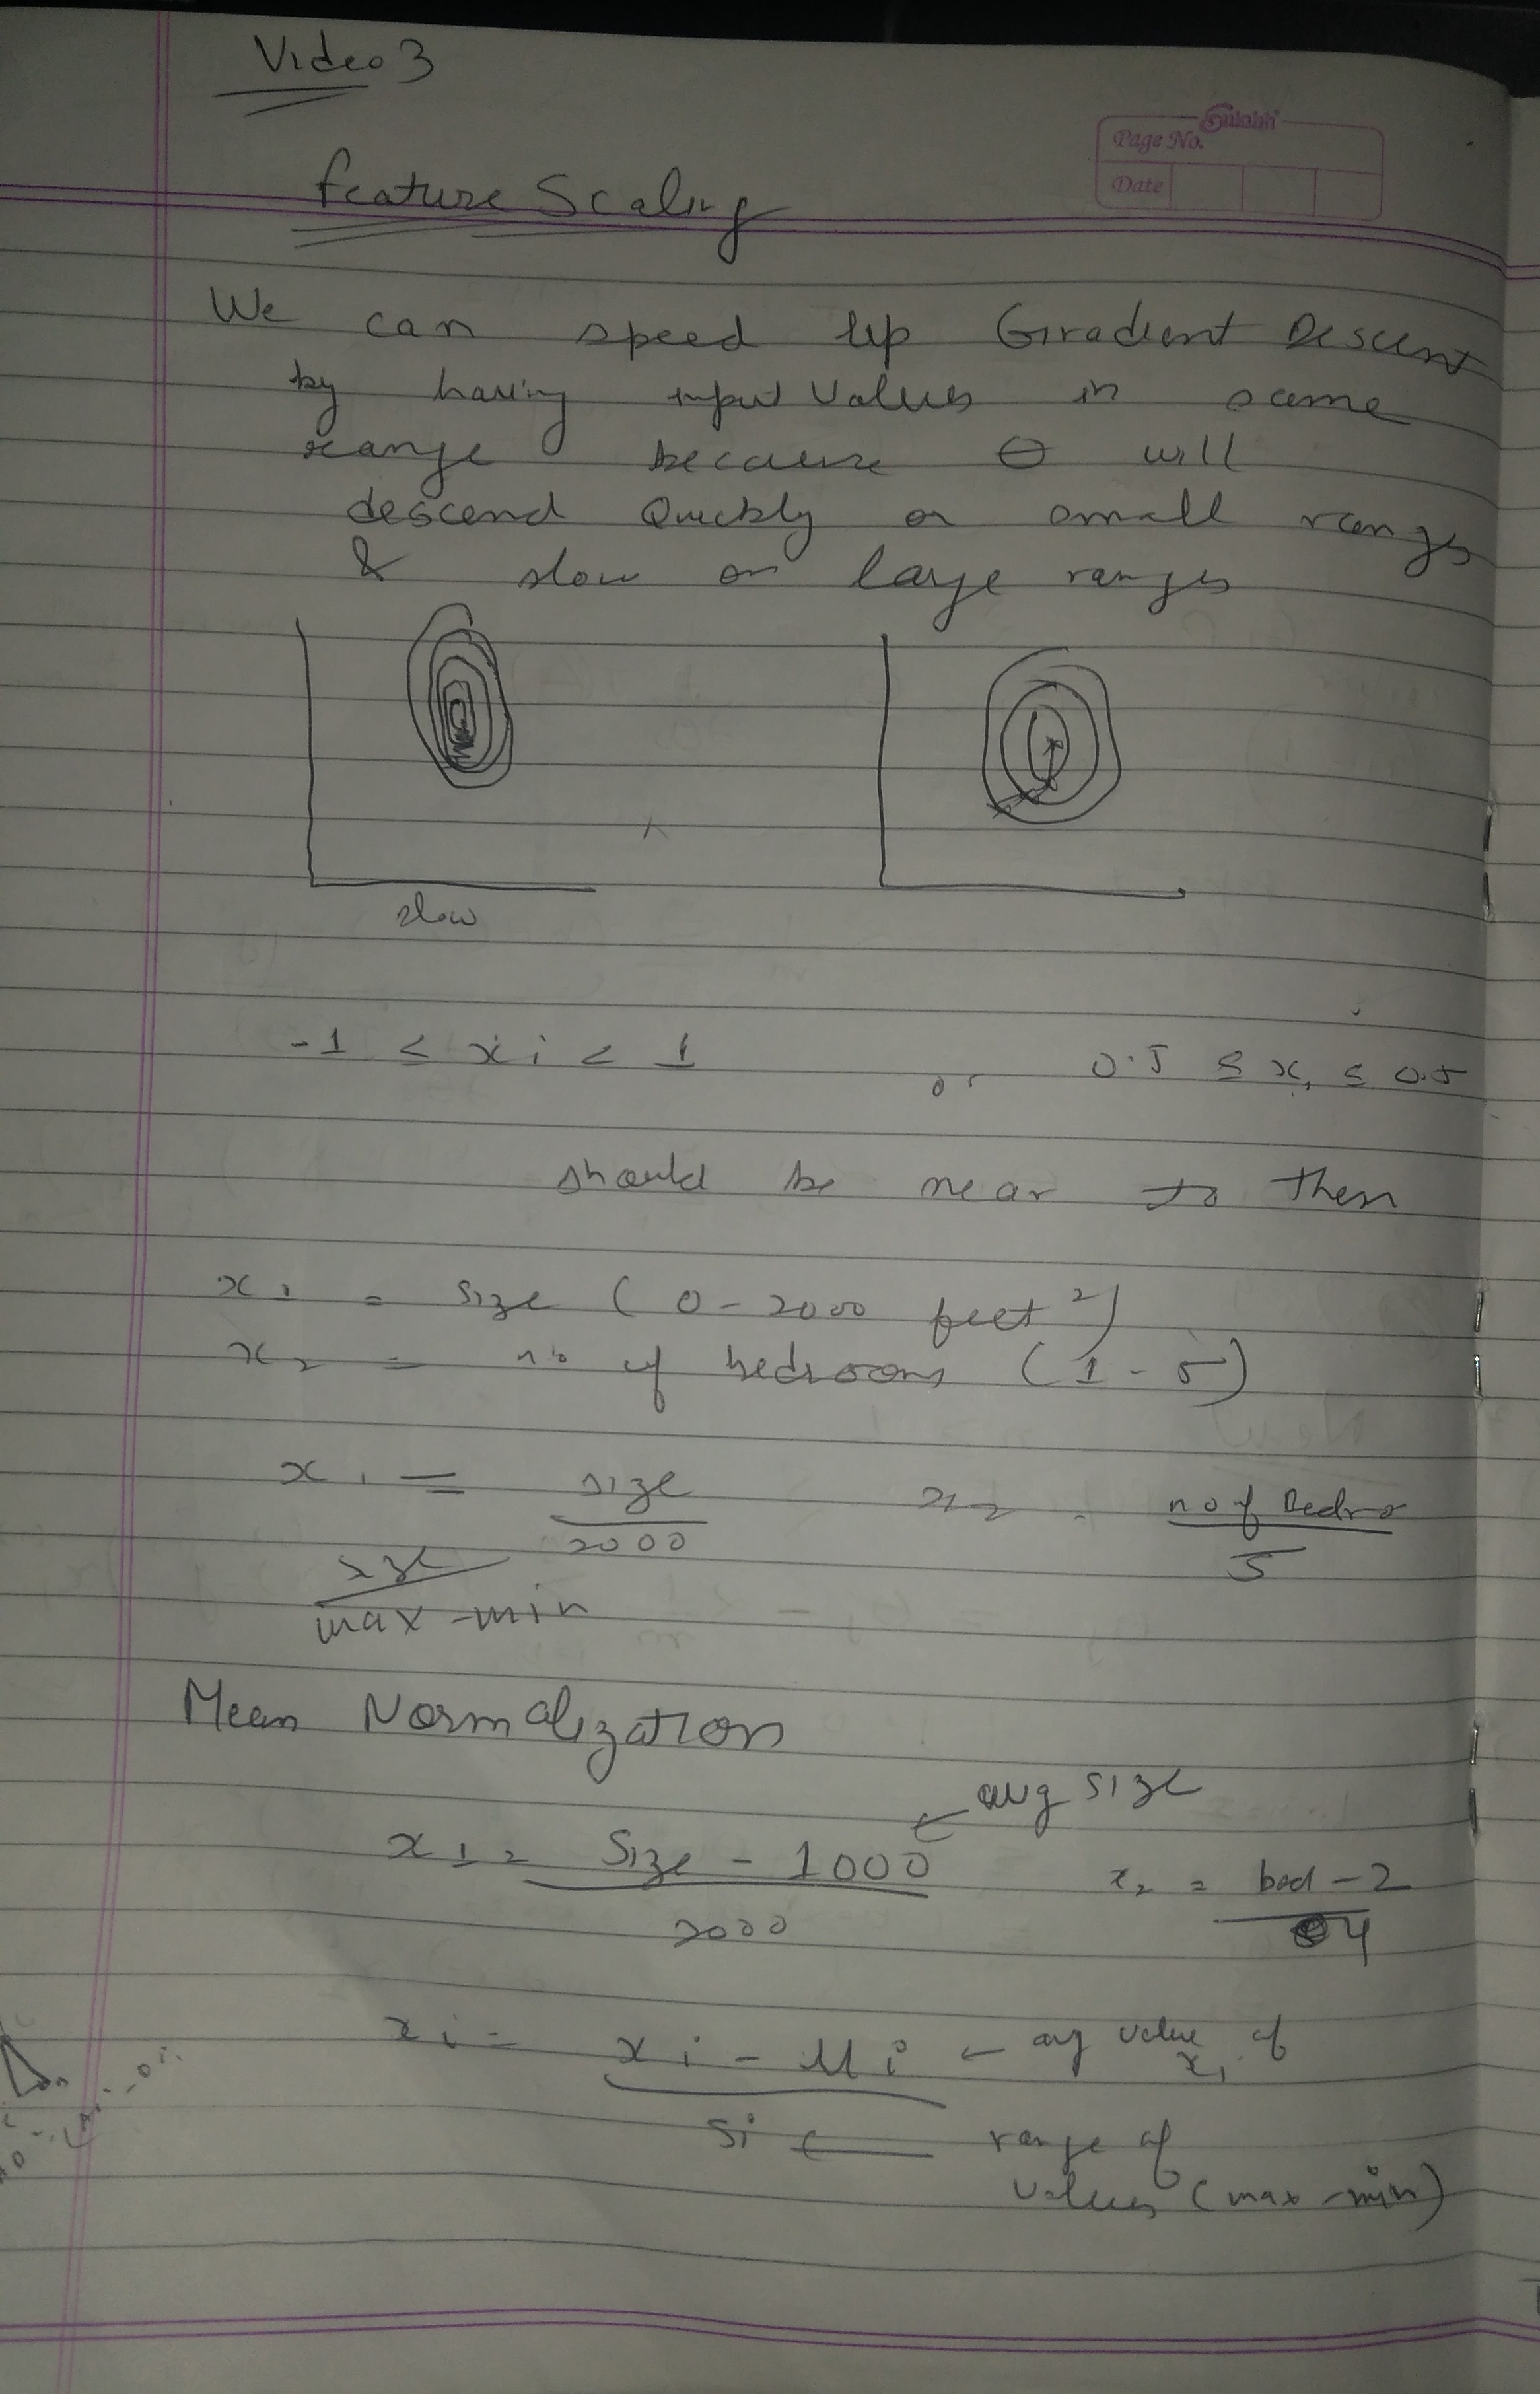 Video 3
Sulabh
Page No.
Date
Feature Scaling
We can speed up Gradient Descent
by having input values in same
range because θ will
descend Quickly on small ranges
& slow on large ranges
slow
-1 ≤ xi < 1 or 0.5 ≤ x, ≤ 0.5
should be near to them
x1 = size (0-2000 feet²)
x2 = no of bedrooms (1-5)
x1 = size/2000 x2 = no of Bedro/5
size/max-min
Mean Normalization
avg size
x1 = Size - 1000/2000 x2 = bed - 2/4
xi = xi - μi ← avg value of x1
si ← range of
values (max-min)